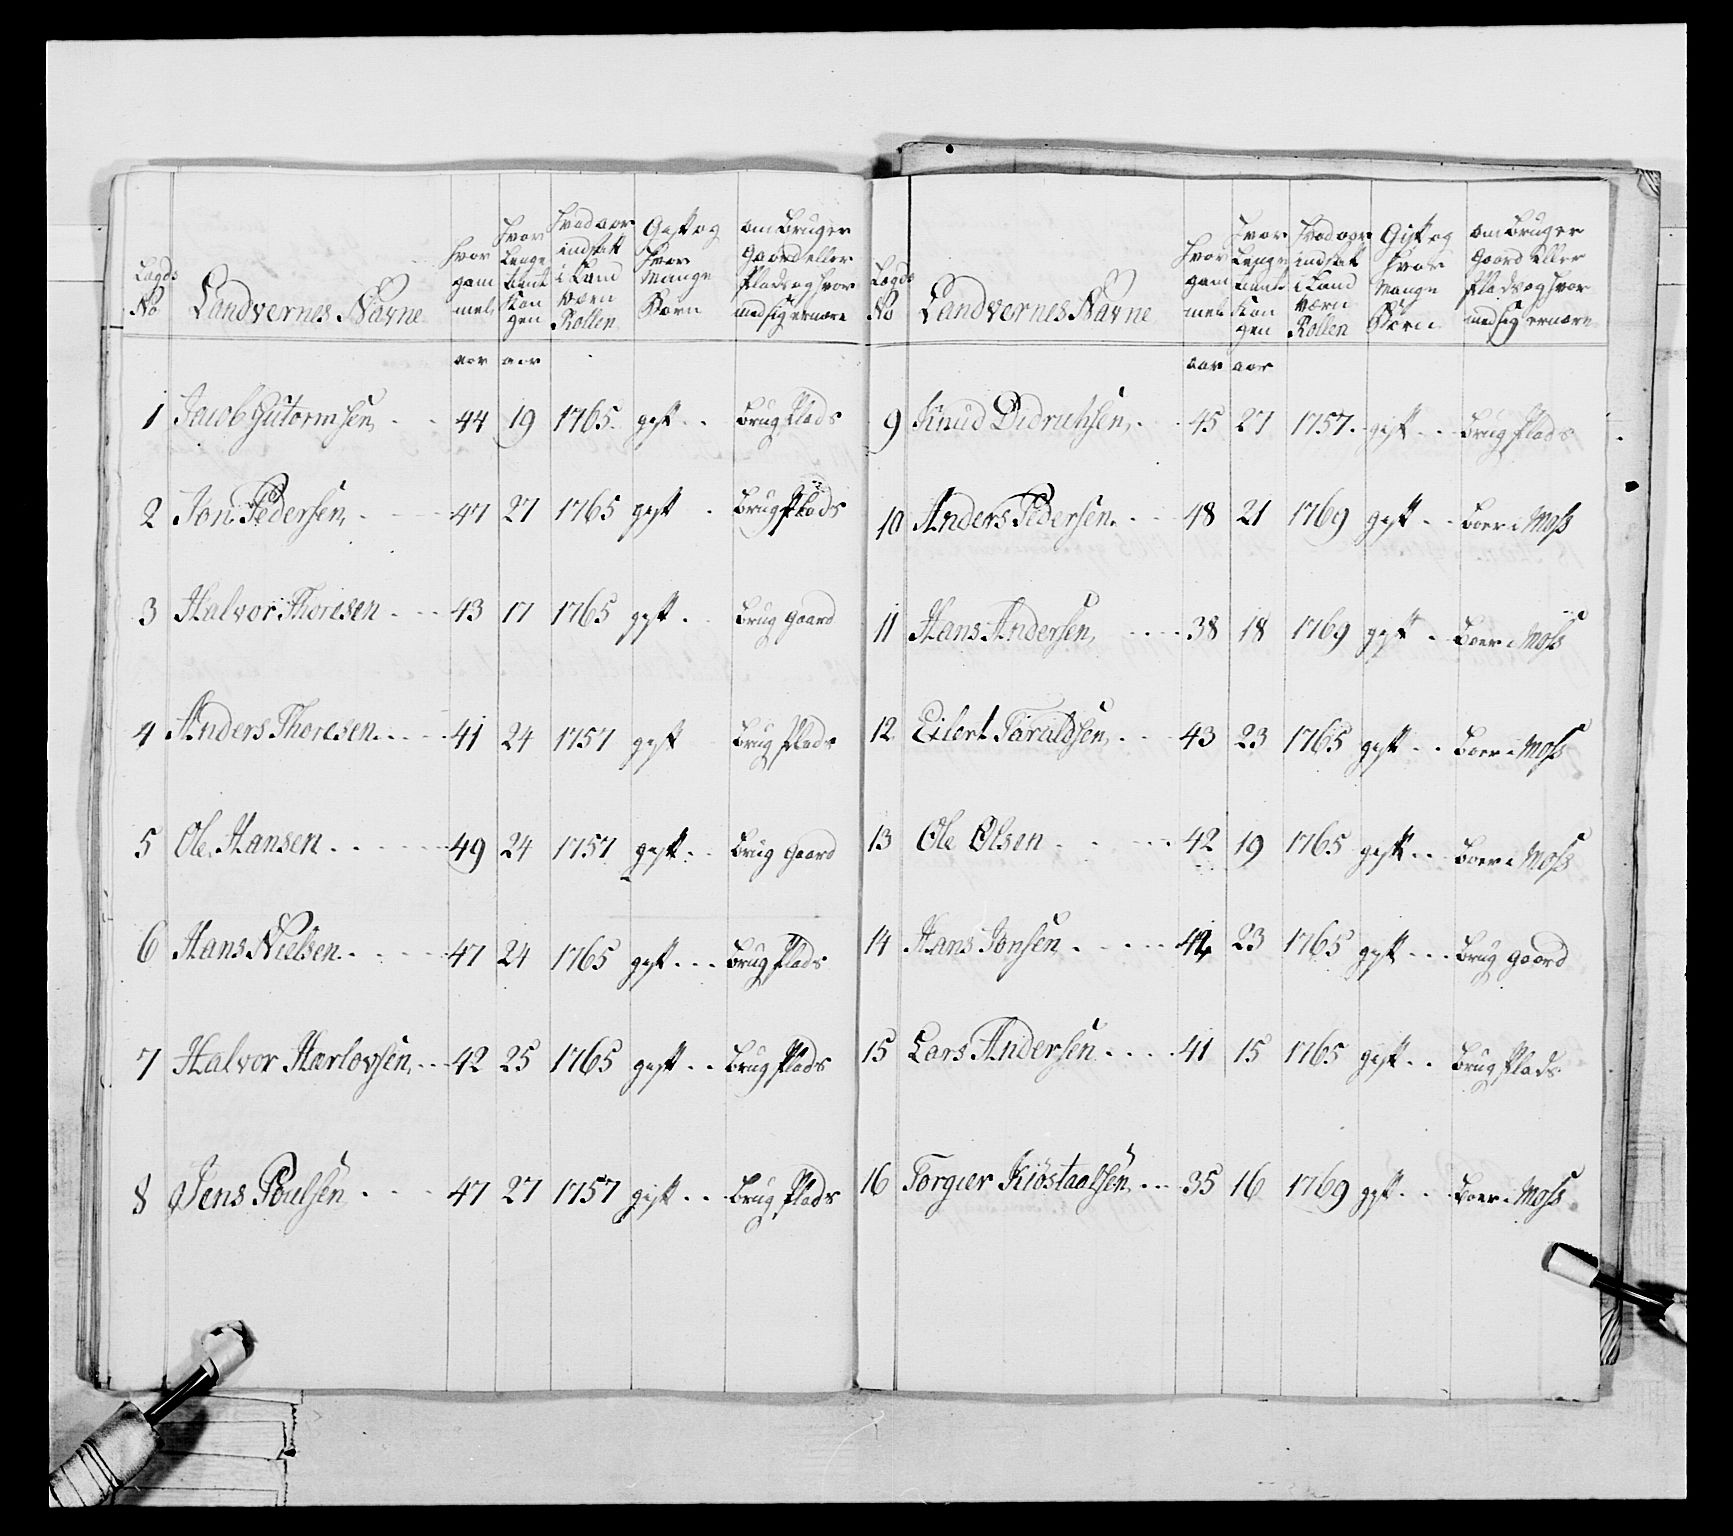 Lægds No | Landvernes Navne | Hvor gam mel | Hvor Lenge tient Kon gen | Hvad aar indsatt i Land værn Rollen | Gift og Hvor Mange Børn | om Bruger Gaard eller Plads og hvor med sig ernære
aar aar
1 Jacob Gutormsen 44 19 1765 gift Brug Plads
2 Jon Pedersen 47 27 1765 gift Brug Plads
3 Halvor Thoresen 43 17 1765 gift Brug gaard
4 Anders Thoresen 41 24 1757 gift Brug Plads
5 Ole Hansen 49 24 1757 gift Brug gaard
6 Hans Nielsen 47 24 1765 gift Brug Plads
7 Halvor Harlovsen 42 25 1765 gift Brug Plads
8 Jens Poulsen 47 27 1757 gift Brug Plads
Lægds No | Landvernes Navne | Hvor gam mel | Hvor Lenge tient Kon gen | Hvad aar indsatt i Land værn Rollen | Gift og Hvor Mange Børn | om Bruger Gaard Eller Plads og hvor med sig ernære
aar aar
9 Knud Didrichsen 45 27 1757 gift Brug Plads
10 Anders Pedersen 48 21 1769 gift Boer i Moss
11 Hans Andersen 38 18 1769 gift Boer i Moss
12 Eilert Taraldsen 43 23 1765 gift Boer i Moss
13 Ole Olsen 42 19 1765 gift Boer i Moss
14 Hans Jonsen 23 1765 gift Brug gaard
15 Lars Andersen 41 15 1765 gift Brug Plads
16 Torgier Kiöstaalsen 35 16 1769 gift Boer i Moss